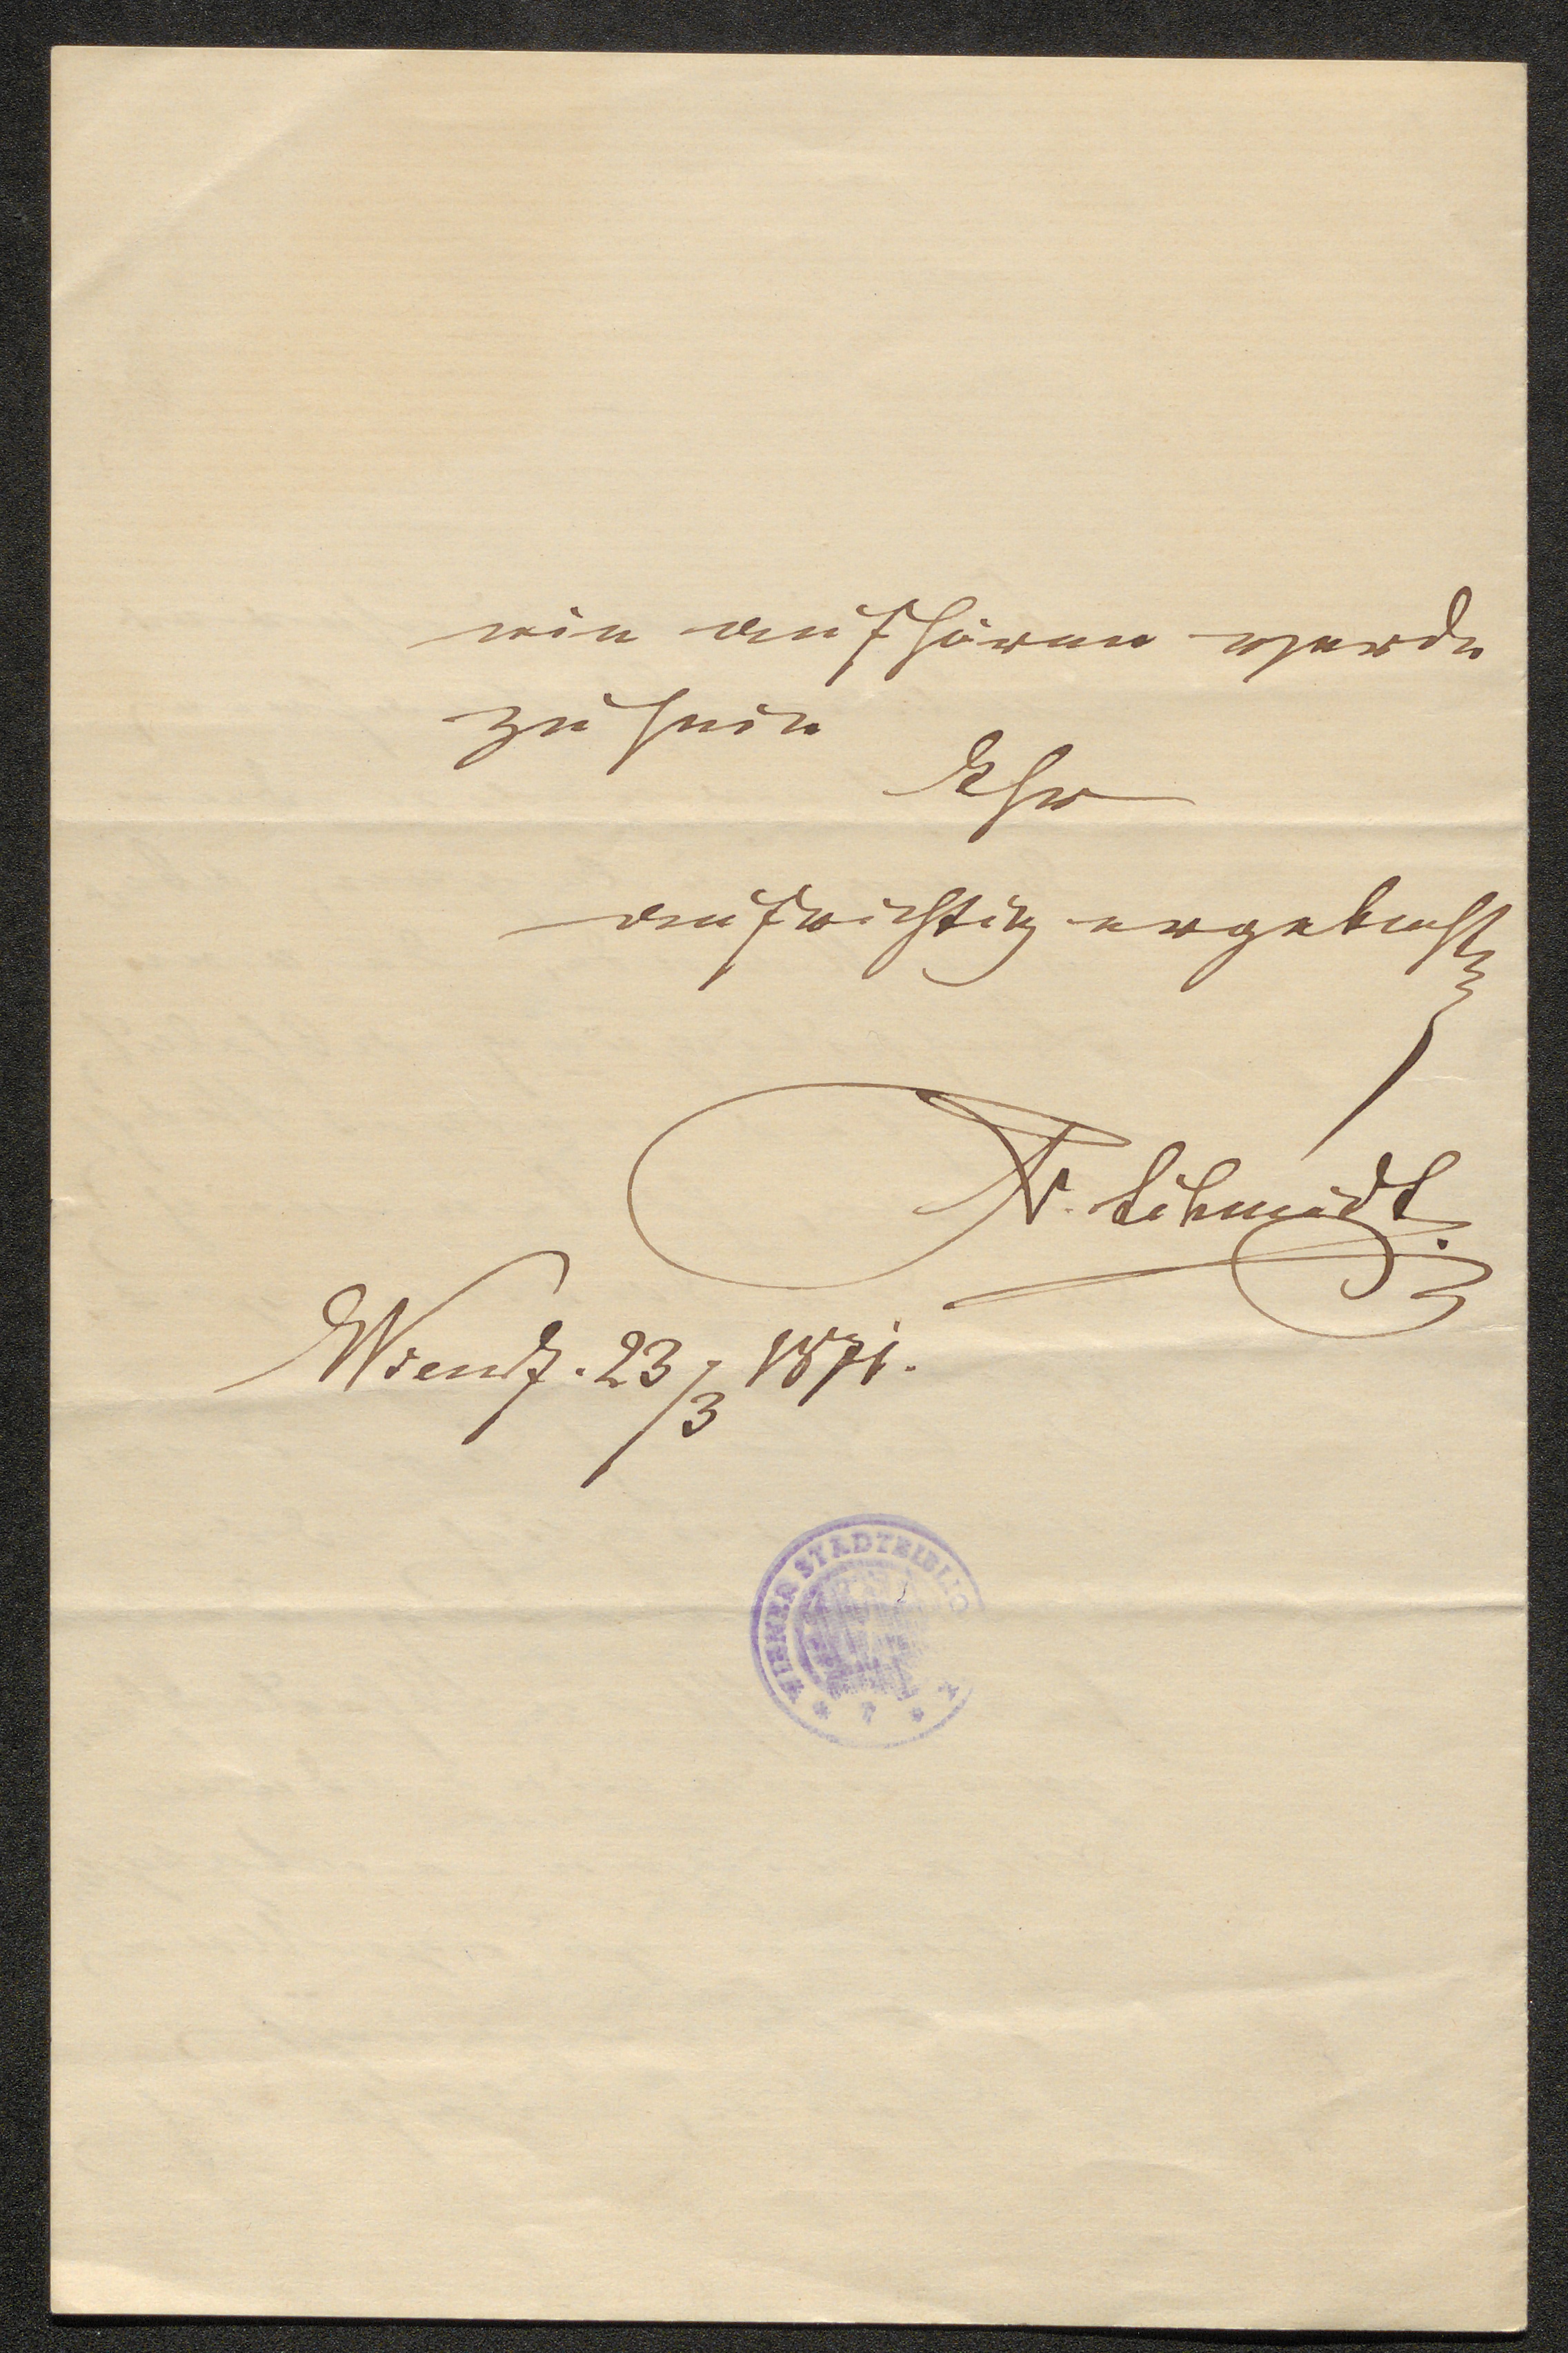 nie aufhören werde
zu sein
Ihr
aufrichtig ergebenster
Fr. Schmidt.
Wien d. 23/3 1871.
WIENER STADTBIBLIO